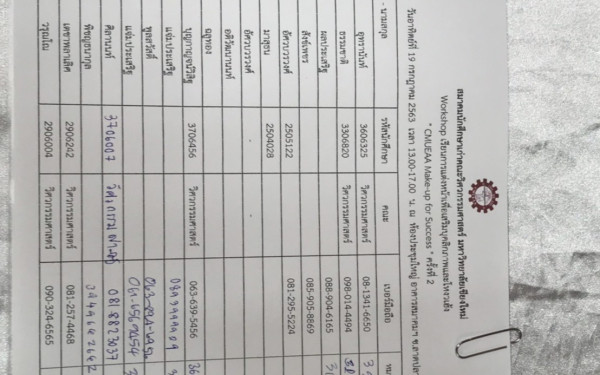 สมาคมนักศึกษาเก่าคณะวิศวกรรมศาสตร์ มหาวิทยาลัยเชียงใหม่
Workshop เรียนการแต่งหน้าเพื่อเสริมบุคลิกภาพและโหงวเฮ้ง
" CMUEAA Make-up for Success " ครั้งที่ 2
วันอาทิตย์ที่ 19 กรกฎาคม 2563 เวลา 13.00-17.00 น. ณ ห้องประชุมใหญ่ อาคารสมาคมฯ
- นามสกุล รหัสนักศึกษา คณะ เบอร์มือถือ
ยุทรานันท์ 3606325 วิศวกรรมศาสตร์ 08-1341-6650
ธรรมชาติ 3306820 วิศวกรรมศาสตร์ 098-014-4494
ผลประเสริฐ 088-906-6165
สังข์เพชร 085-905-8869
อัศวบวรวงศ์ 2505122 วิศวกรรมศาสตร์ 081-295-5224
มาสุธน 2504028 วิศวกรรมศาสตร์
อัศวบวรวงศ์ -
อดิวัฒนานนท์ -
ฉลูทอง -
บุญกาญจน์วิสิฐ 3706456 วิศวกรรมศาสตร์ 063-639-5456
แจ่มประเสริฐ
พูลสวัสดิ์
แจ่มประเสริฐ
ศิลานนท์ 3706007 081-8823037
พิชญธนากูล
เดชาพลาเลิศ 2906242 วิศวกรรมศาสตร์ 081-257-4468
วรุณโณ 2906004 วิศวกรรมศาสตร์ 090-324-6565